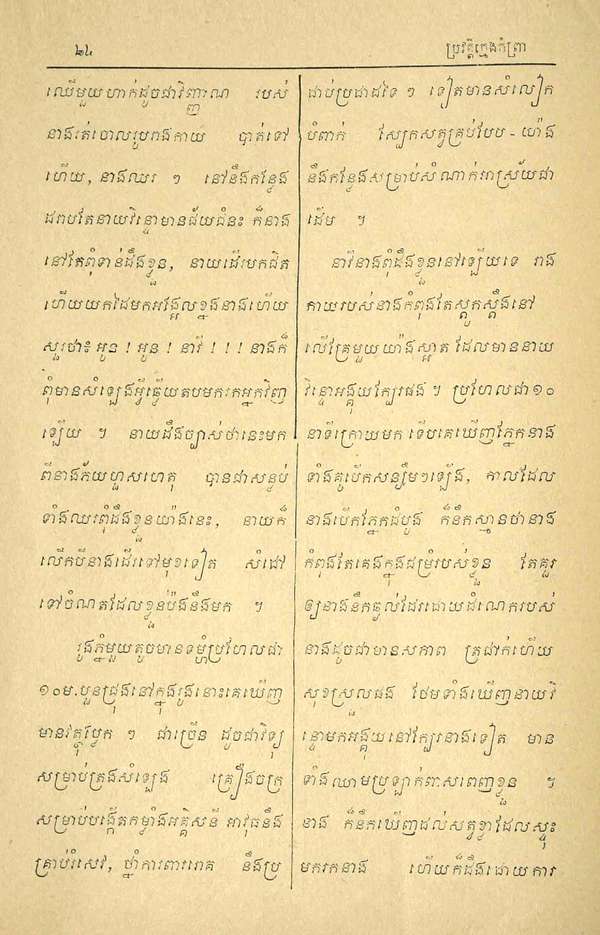 ២៤ ប្រវត្តិក្មេងកំព្រា
ឈើមួយហាក់ដូចជាវិញ្ញាណ របស់
នាងរត់ចោលរូបរាងកាយ បាត់ទៅ
ហើយ, នាងឈរ ៗ នៅនឹងកន្លែង
ដរាបតែនាយវិន្ទោមានជ័យជំនះ ក៏នាង
នៅតែពុំទាន់ដឹងខ្លួន, នាយដើរមកជិត
ហើយយកដៃមកអង្អែលខ្នងនាងហើយ
សួរថា៖ អូន ! អូន ! នាវី ! ! ! នាងក៏
ពុំមានសំឡេងអ្វីឆ្លើយតបមករកអ្នកវិញ
ឡើយ ។ នាយដឹងច្បាស់ថានេះមក
ពីនាងភ័យហួសហេតុ បានជាសន្លប់
ទាំងឈរពុំដឹងខ្លួនយ៉ាងនេះ, នាយក៏
លើកបីនាងដើរទៅមុខទៀត សំដៅ
ទៅចំណតដែលខ្លួនប៉ងនឹងមក ។
រូងភ្នំមួយតូចមានទម្ហំប្រហែលជា
១០ម.បួនជ្រុងនៅក្នុងរូងនោះគេឃើញ
មានវត្ថុប្លែក ៗ ជាច្រើន ដូចជាវិទ្យុ
សម្រាប់ត្រងសំឡេង គ្រឿងចក្រ
សម្រាប់បង្កើតកម្លាំងអគ្គិសនី អាវុធនឹង
គ្រាប់រំសេវ, ថ្នាំការពាររោគ នឹងប្រ
ដាប់ប្រដាដទៃ ៗ ទៀតមានសំលៀក
បំពាក់ ស្បែកសត្វគ្រប់បែប - យ៉ាង
នឹងកន្លែងសម្រាប់សំណាក់អាស្រ័យជា
ដើម ។
នាវីនាងពុំដឹងខ្លួននៅឡើយទេ រាង
កាយរបស់នាងកំពុងតែស្តូកស្តឹងនៅ
លើគ្រែមួយយ៉ាងស្អាត ដែលមាននាយ
វិន្ទោអង្គុយក្បែរផង ។ ប្រហែលជា ១០
នាទីក្រោយមក ទើបគេឃើញភ្នែកនាង
ទាំងគូបើកសន្សឹមៗឡើង, កាលដែល
នាងបើកភ្នែកដំបូង ក៏នឹកស្មានថានាង
កំពុងតែគេងក្នុងជម្រំរបស់ខ្លួន តែគួរ
ឲ្យនាងនឹកឆ្ងល់ដែរដោយដំណេករបស់
នាងដូចជាមានសភាព ត្រជាក់ហើយ
សុខស្រួលផង ថែមទាំងឃើញនាយវិ
ន្ទោមកអង្គុយនៅក្បែរនាងទៀត មាន
ទាំងឈាមប្រឡាក់ពាសពេញខ្លួន ។
នាង ក៏នឹកឃើញដល់សត្វខ្លាដែលស្ទុះ
មករកនាង ហើយក៏ដឹងដោយការ